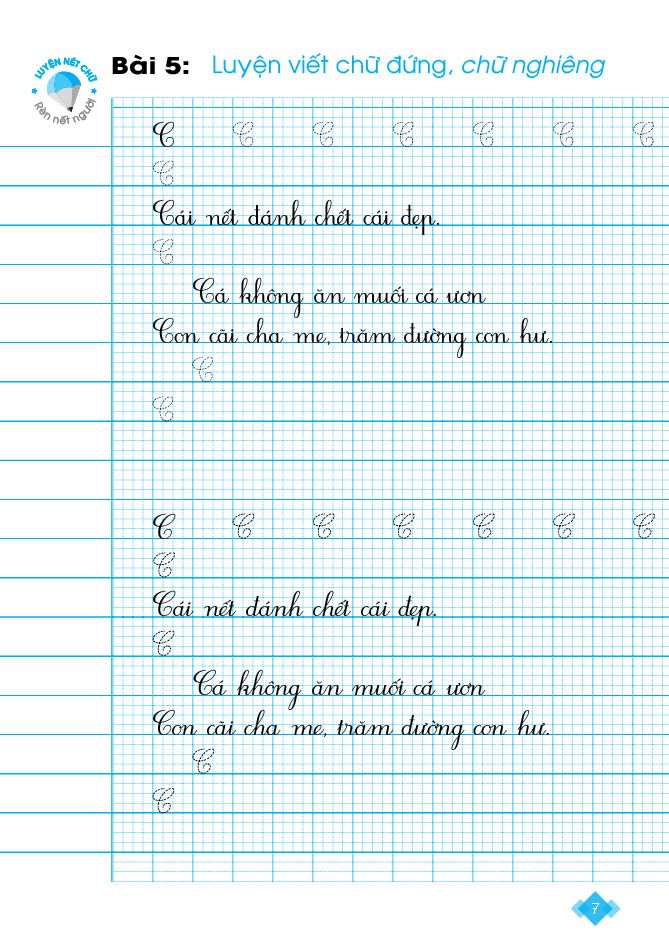 LUYỆN NẾT CHỮ
Rèn nết người
Bài 5: Luyện viết chữ đứng, chữ nghiêng
C C C C C C C
C
Cái nết đánh chết cái đẹp.
C
Cá không ăn muối cá ươn
Con cãi cha mẹ, trăm đường con hư.
C
C
C C C C C C C
C
Cái nết đánh chết cái đẹp.
C
Cá không ăn muối cá ươn
Con cãi cha mẹ, trăm đường con hư.
C
C
7